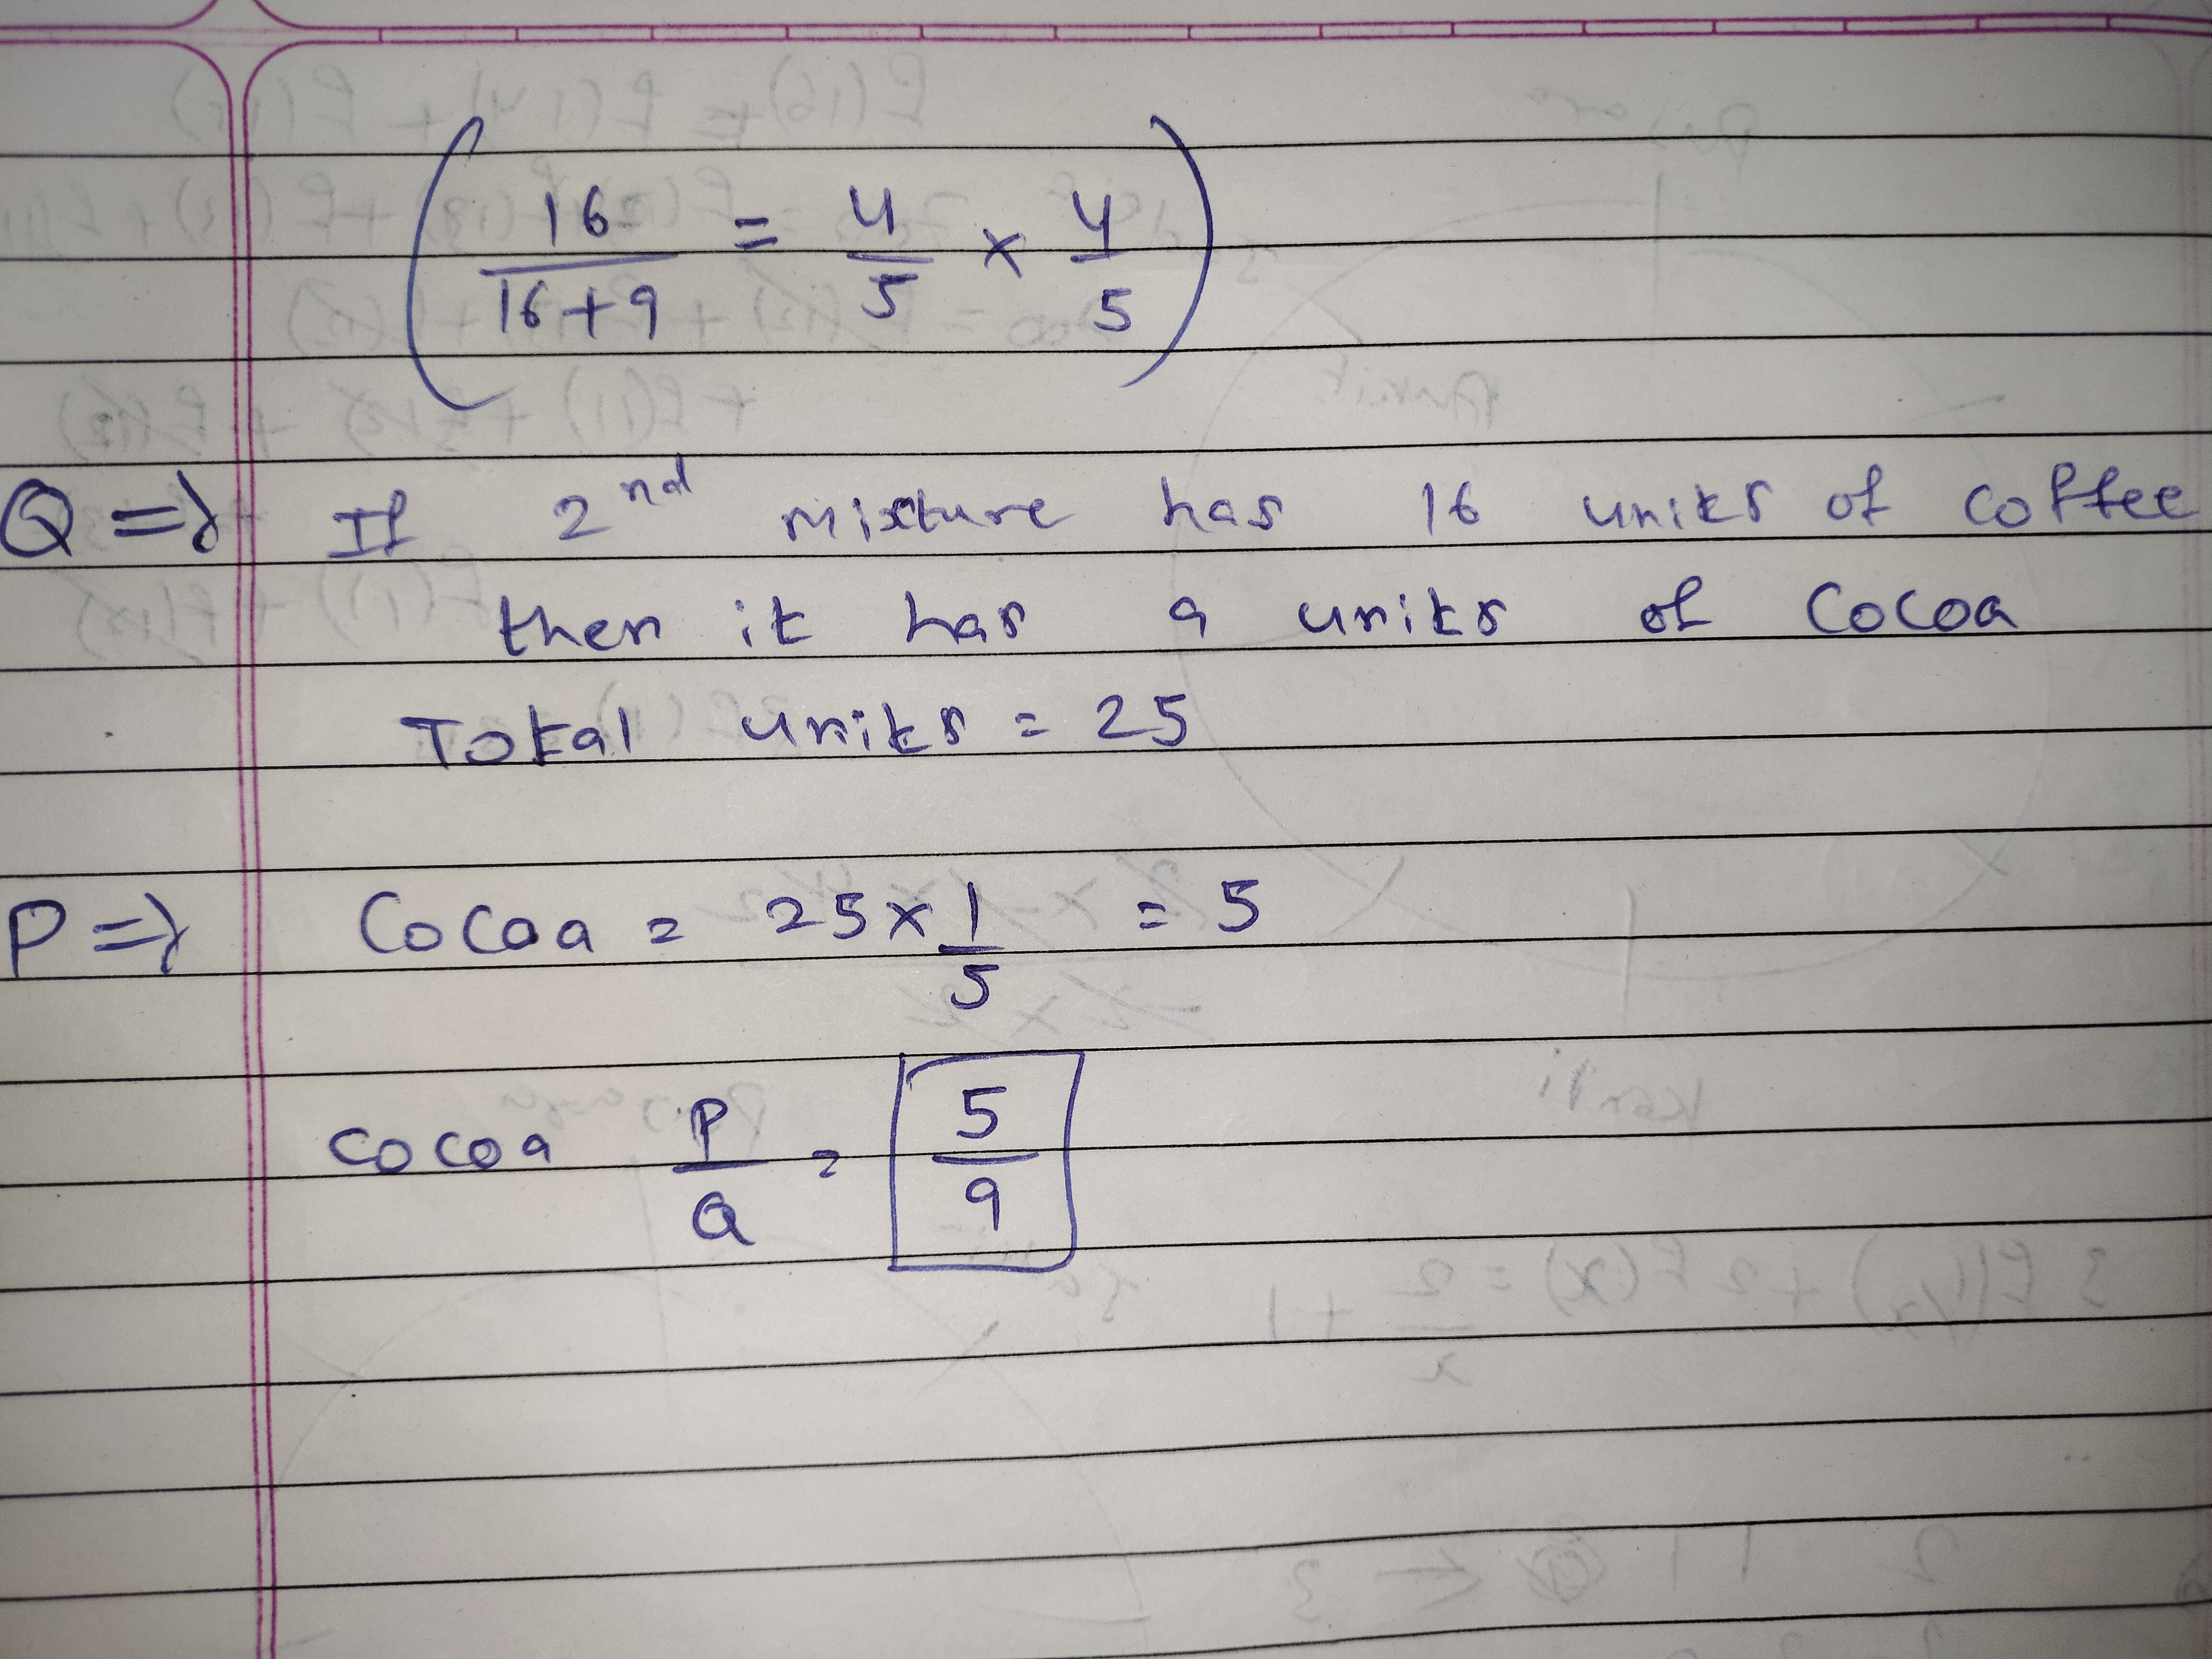 ( 16/16+9 = 4/5 × 4/5 )
Q => If 2nd mixture has 16 units of coffee
then it has 9 units of Cocoa
Total units = 25
P => Cocoa = 25 × 1/5 = 5
cocoa P/Q = 5/9